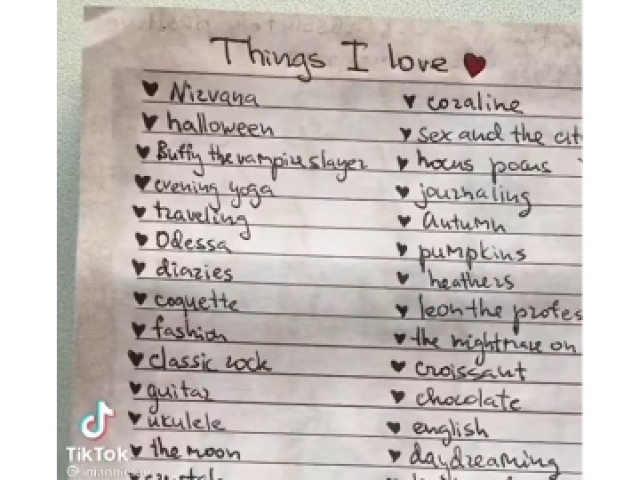 Things I love
Nirvana
halloween
Buffy the vampire slayer
evening yoga
traveling
Odessa
diaries
coquette
fashion
classic rock
guitar
ukulele
the moon
coraline
sex and the cit
hocus pocus
journaling
autumn
pumpkins
heathers
leon the profes
the nightmare on
croissant
chocolate
english
daydreaming
TikTok